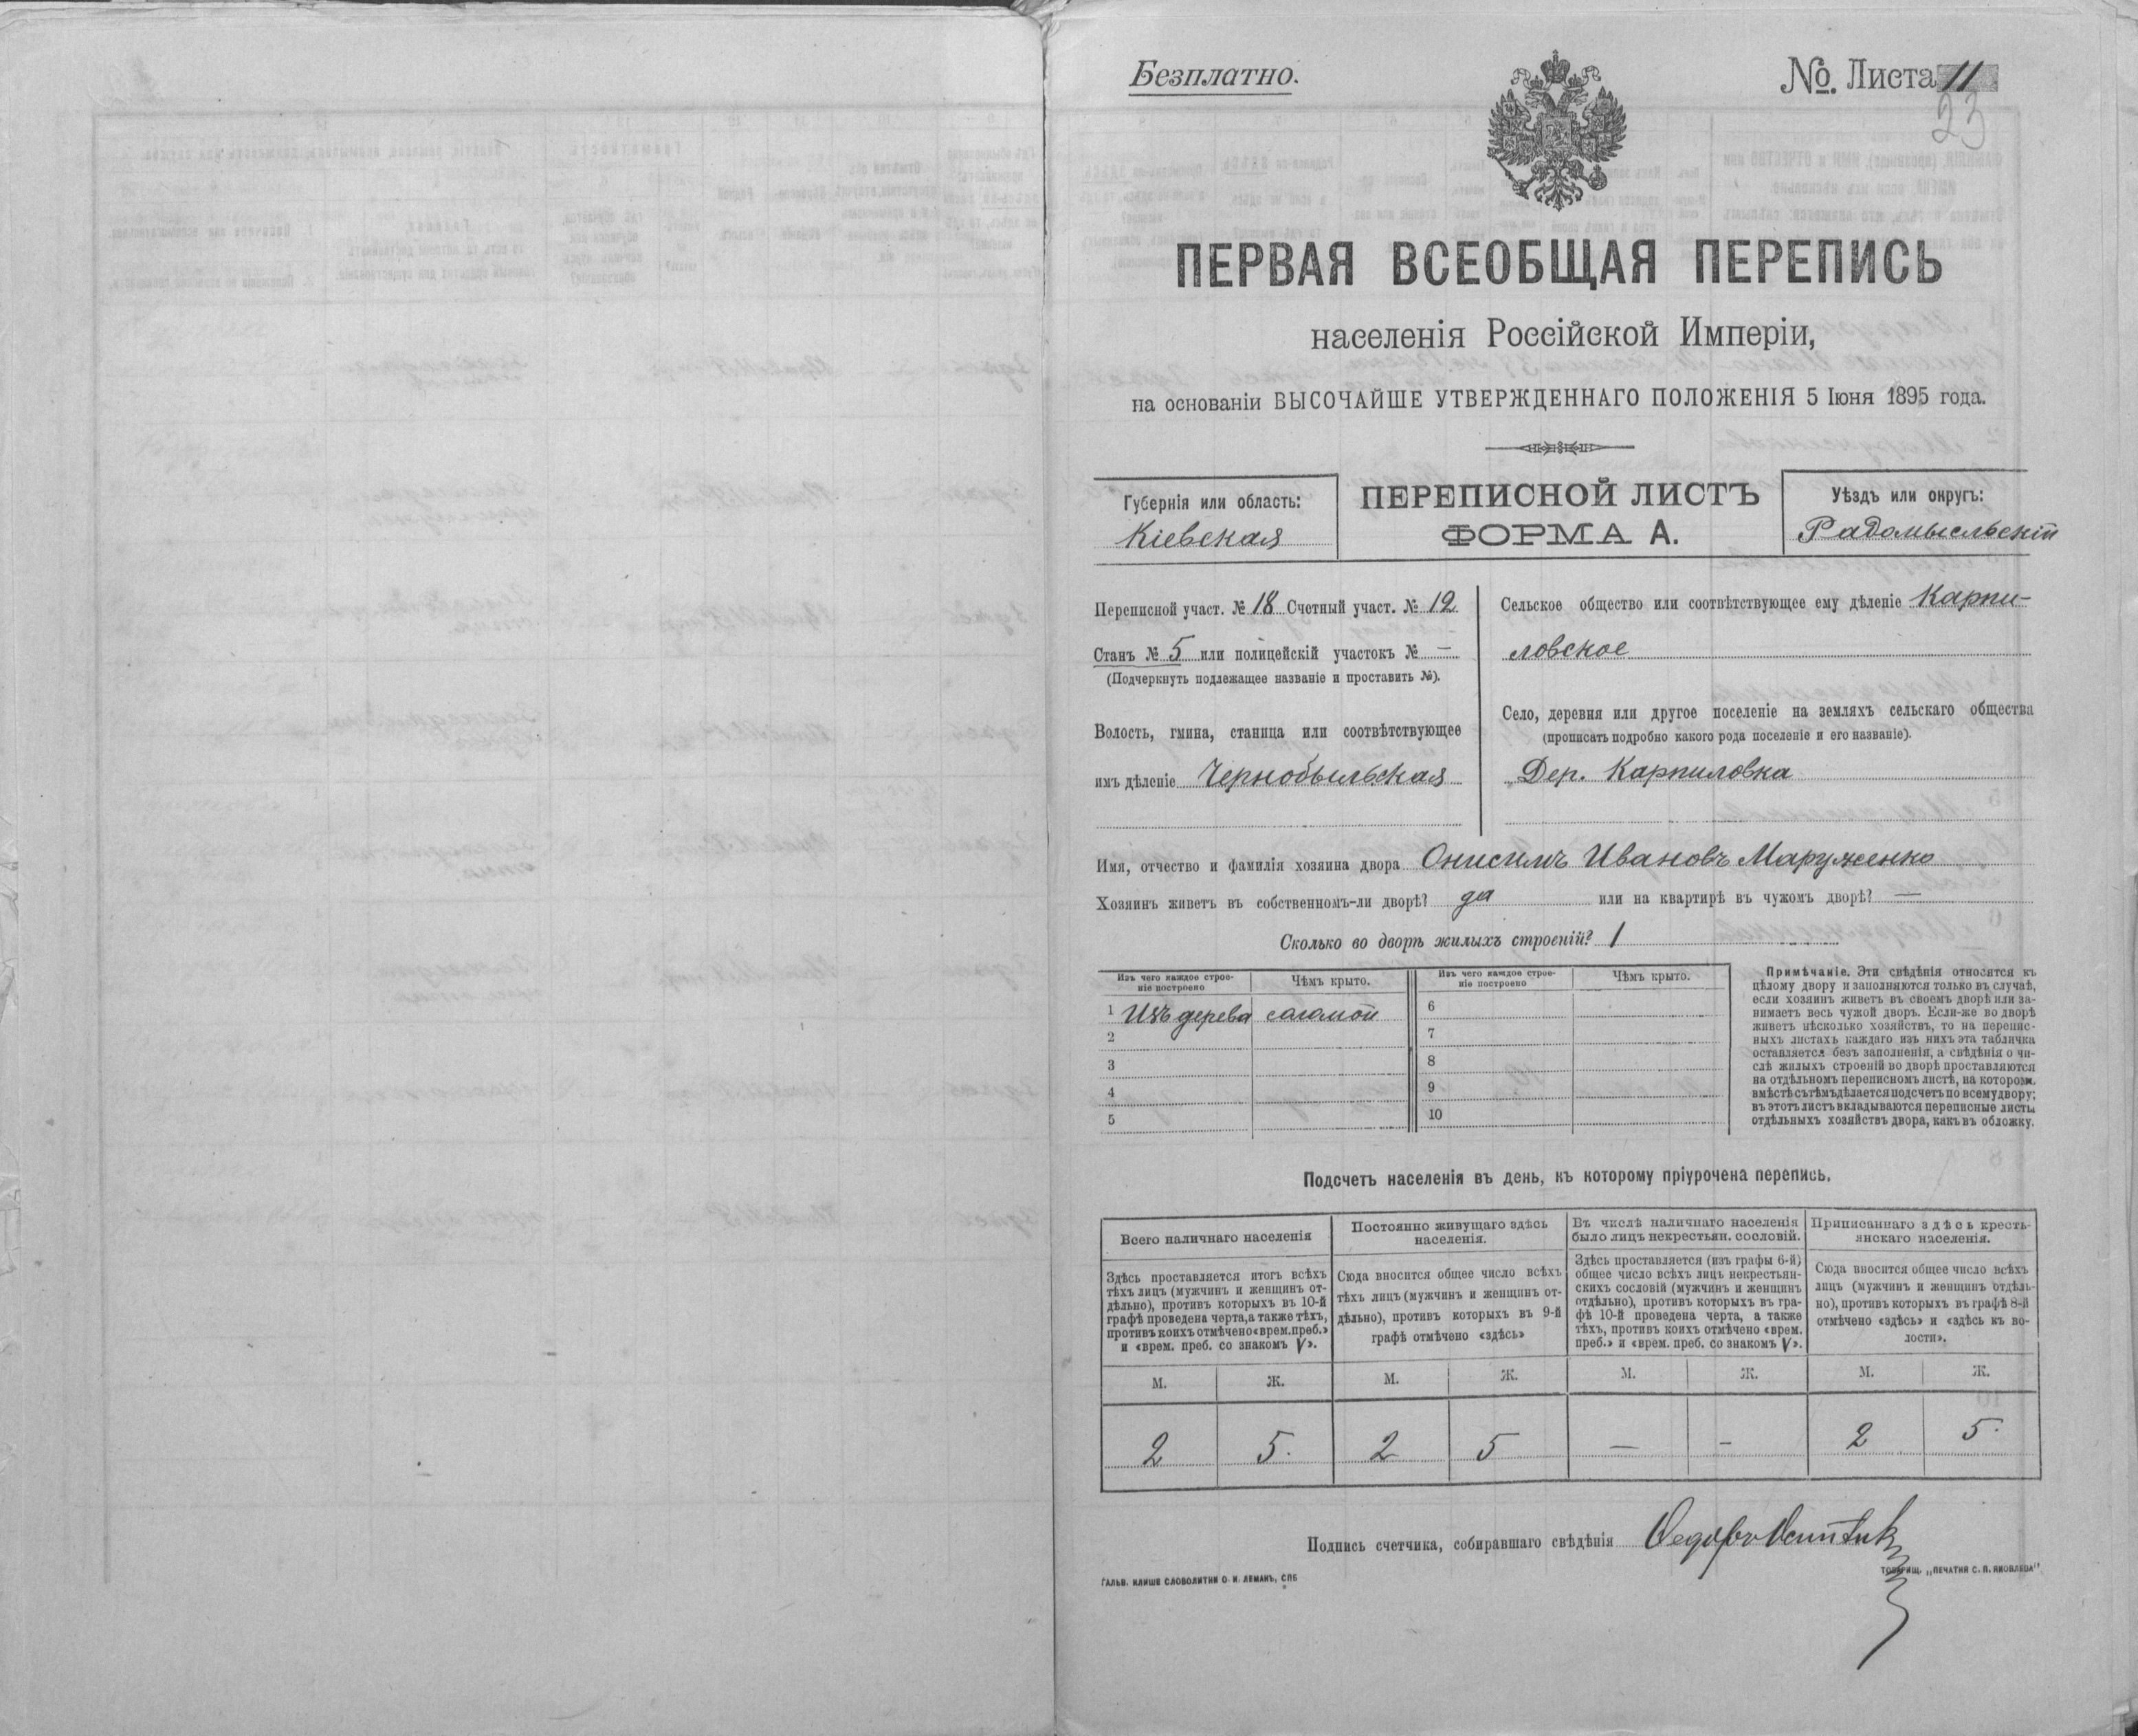 Безплатно.
№. Листа 11
23
ПЕРВАЯ ВСЕОБЩАЯ ПЕРЕПИСЬ
населенія Россійской Имперіи,
на основаніи ВЫСОЧАЙШЕ УТВЕРЖДЕННАГО ПОЛОЖЕНІЯ 5 Іюня 1895 года.
Губернія или область:
Кіевская
ПЕРЕПИСНОЙ ЛИСТЪ
ФОРМА А.
Уѣздъ или округъ:
Радомысльскій
Переписной участ. № 18 Счетный участ. № 12
Станъ № 5 или полицейскій участокъ № —
(Подчеркнуть подлежащее названіе и проставить №).
Волость, гмина, станица или соотвѣтствующее
имъ дѣленіе Чернобыльская
Сельское общество или соотвѣтствующее ему дѣленіе Карпи-
ловское
Село, деревня или другое поселеніе на земляхъ сельскаго общества
(прописать подробно какого рода поселеніе и его названіе).
Дер. Карпиловка
Имя, отчество и фамилія хозяина двора Онисимъ Ивановъ Маруженко
Хозяинъ живетъ въ собственномъ-ли дворѣ? да или на квартирѣ въ чужомъ дворѣ? —
Сколько во дворѣ жилыхъ строеній? 1
Изъ чего каждое строе-
ніе построено
Чѣмъ крыто.
Изъ чего каждое строе-
ніе построено
Чѣмъ крыто.
1 Изъ дерева соломой
2
3
4
5
6
7
8
9
10
Примѣчаніе. Эти свѣдѣнія относятся къ
цѣлому двору и заполняются только въ случаѣ,
если хозяинъ живетъ въ своемъ дворѣ или за-
нимаетъ весь чужой дворъ. Если-же во дворѣ
живетъ нѣсколько хозяйствъ, то на перепис-
ныхъ листахъ каждаго изъ нихъ эта табличка
оставляется безъ заполненія, а свѣдѣнія о чи-
слѣ жилыхъ строеній во дворѣ проставляются
на отдѣльномъ переписномъ листѣ, на которомъ
вмѣстѣ съ тѣмъ дѣлается подсчетъ по всему двору;
въ этотъ листъ вкладываются переписные листы
отдѣльныхъ хозяйствъ двора, какъ въ обложку.
Подсчетъ населенія въ день, къ которому пріурочена перепись.
Всего наличнаго населенія
Постоянно живущаго здѣсь
населенія.
Въ числѣ наличнаго населенія
было лицъ некрестьян. сословій.
Приписаннаго здѣсь кресть-
янскаго населенія.
Здѣсь проставляется итогъ всѣхъ
тѣхъ лицъ (мужчинъ и женщинъ от-
дѣльно), противъ которыхъ въ 10-й
графѣ проведена черта, а также тѣхъ,
противъ коихъ отмѣчено «врем. преб.»
и «врем. преб. со знакомъ V».
Сюда вносится общее число всѣхъ
тѣхъ лицъ (мужчинъ и женщинъ от-
дѣльно), противъ которыхъ въ 9-й
графѣ отмѣчено «здѣсь»
Здѣсь проставляется (изъ графы 6-й)
общее число всѣхъ лицъ некрестьян-
скихъ сословій (мужчинъ и женщинъ
отдѣльно), противъ которыхъ въ гра-
фѣ 10-й проведена черта, а также
тѣхъ, противъ коихъ отмѣчено «врем.
преб.» и «врем. преб. со знакомъ V».
Сюда вносится общее число всѣхъ
лицъ (мужчинъ и женщинъ отдѣль-
но), противъ которыхъ въ графѣ 8-й
отмѣчено «здѣсь» и «здѣсь къ во-
лости».
М. Ж. М. Ж. М. Ж. М. Ж.
2 5. 2 5 — - 2 5.
Подпись счетчика, собиравшаго свѣдѣнія
ГАЛЬВ. КЛИШЕ СЛОВОЛИТНИ О. И. ЛЕМАНЪ, СПБ
ТОВАРИЩ. „ПЕЧАТНЯ С. П. ЯКОВЛЕВА"